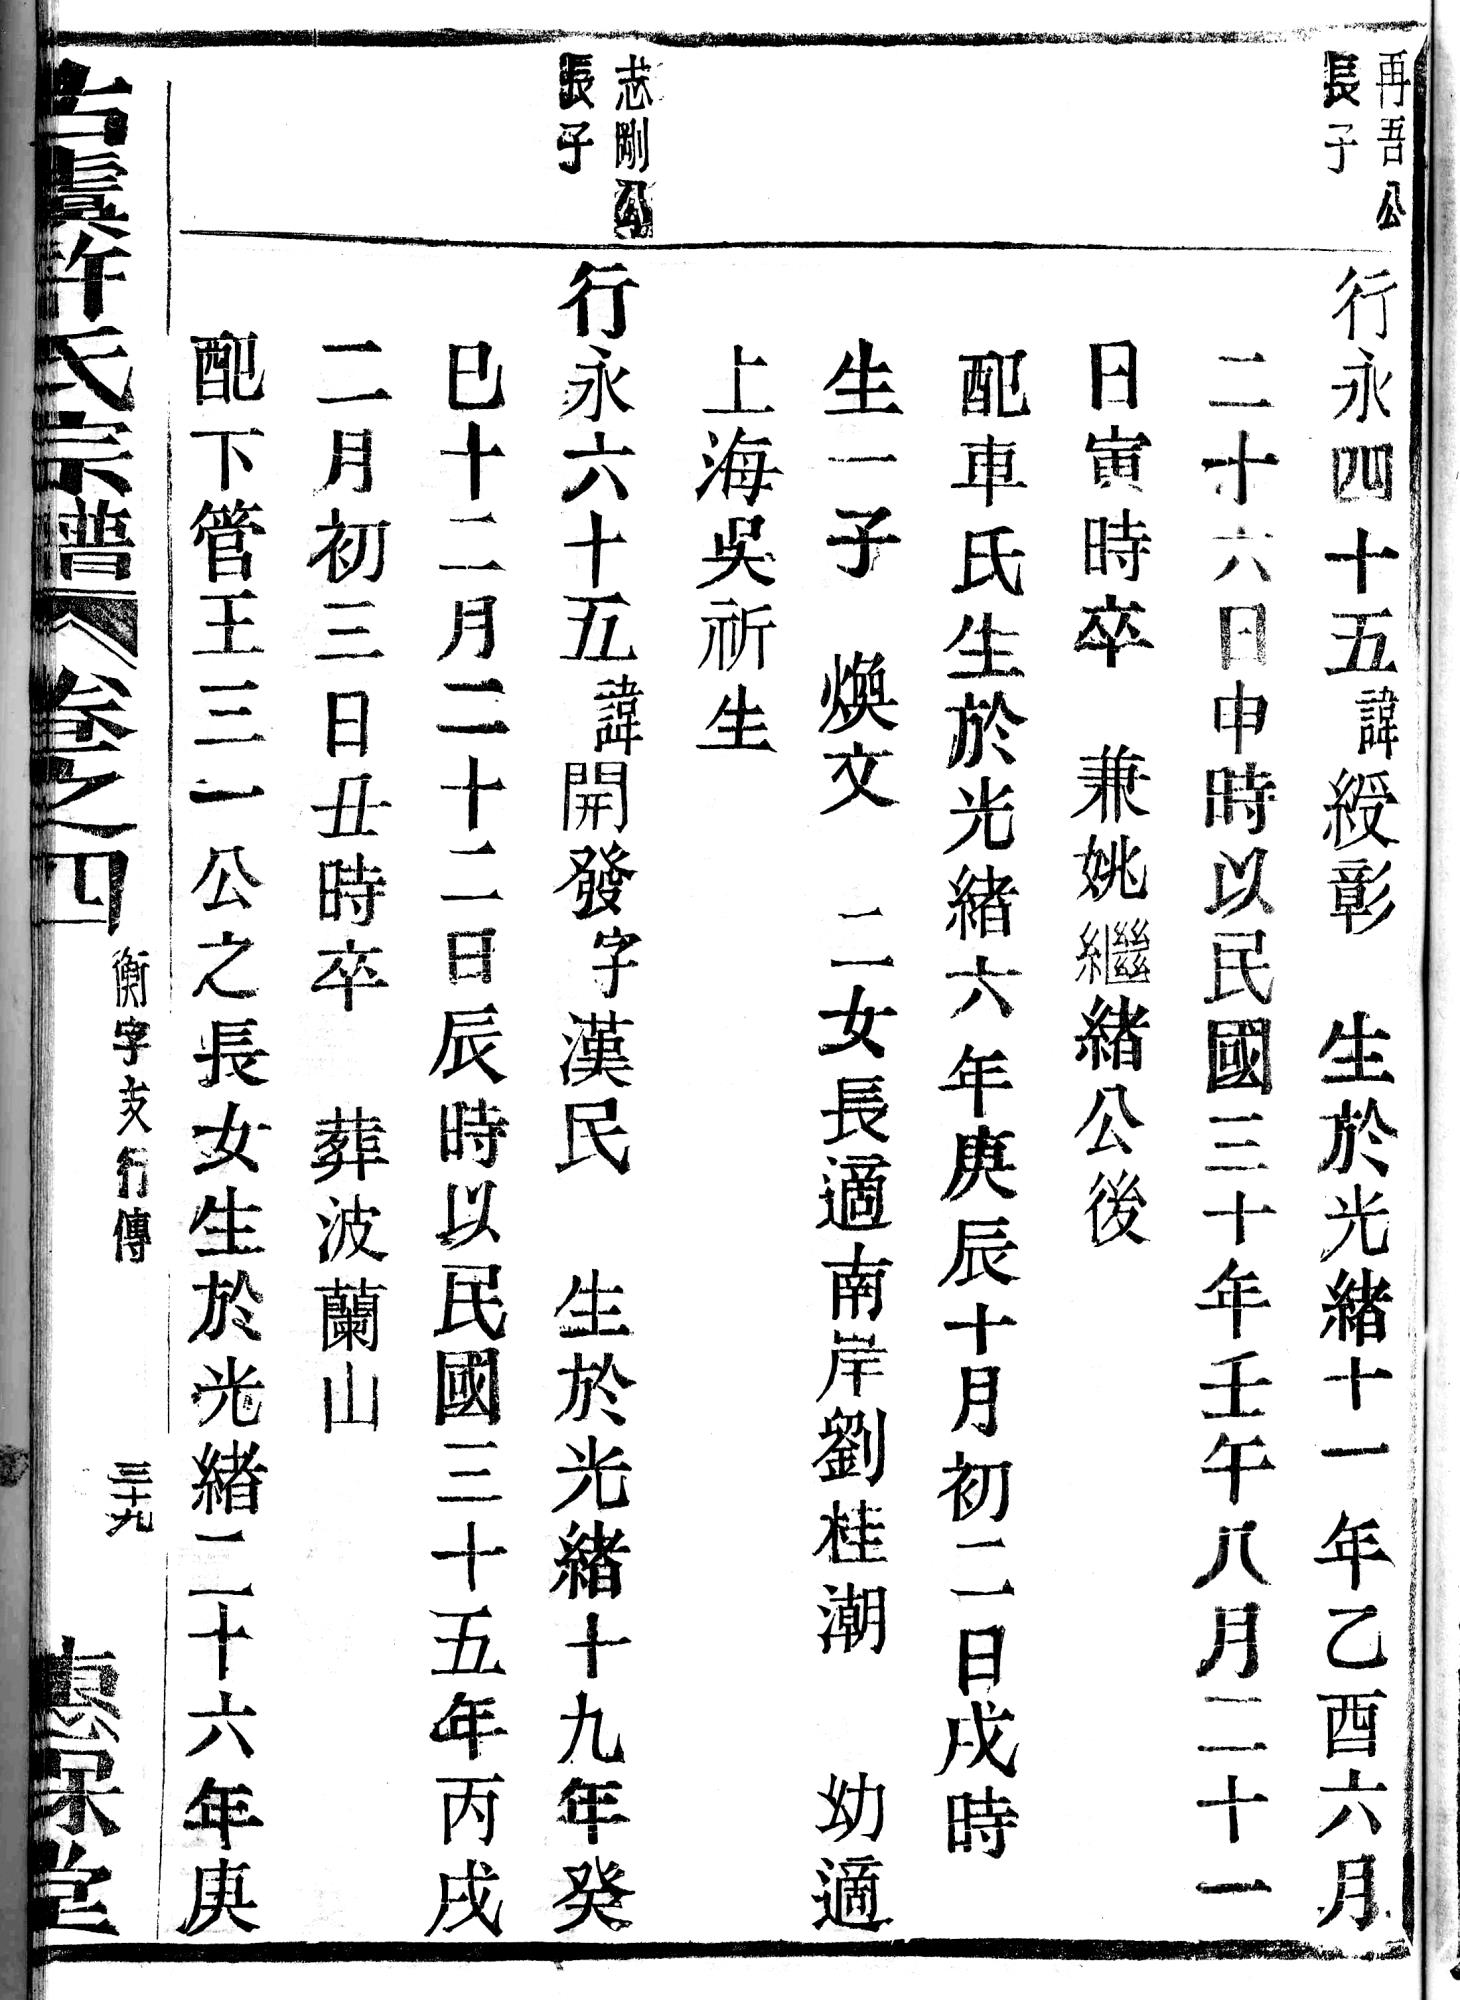 再吾公
長子
行永四十五諱綬彰　生於光緒十一年乙酉六月
二十六日申時以民國三十年壬午八月二十一
日寅時卒　兼姚繼緒公後
配車氏生於光緒六年庚辰十月初二日戌時
生一子　煥文　二女長適南岸劉桂潮　幼適
上海吳祈生
志剛公
長子
行永六十五諱開發字漢民　生於光緒十九年癸
巳十二月二十二日辰時以民國三十五年丙戌
二月初三日丑時卒　葬波蘭山
配下管王三一公之長女生於光緒二十六年庚
古虞許氏宗譜　卷之四　衡字支行傳　三十九　惠保堂